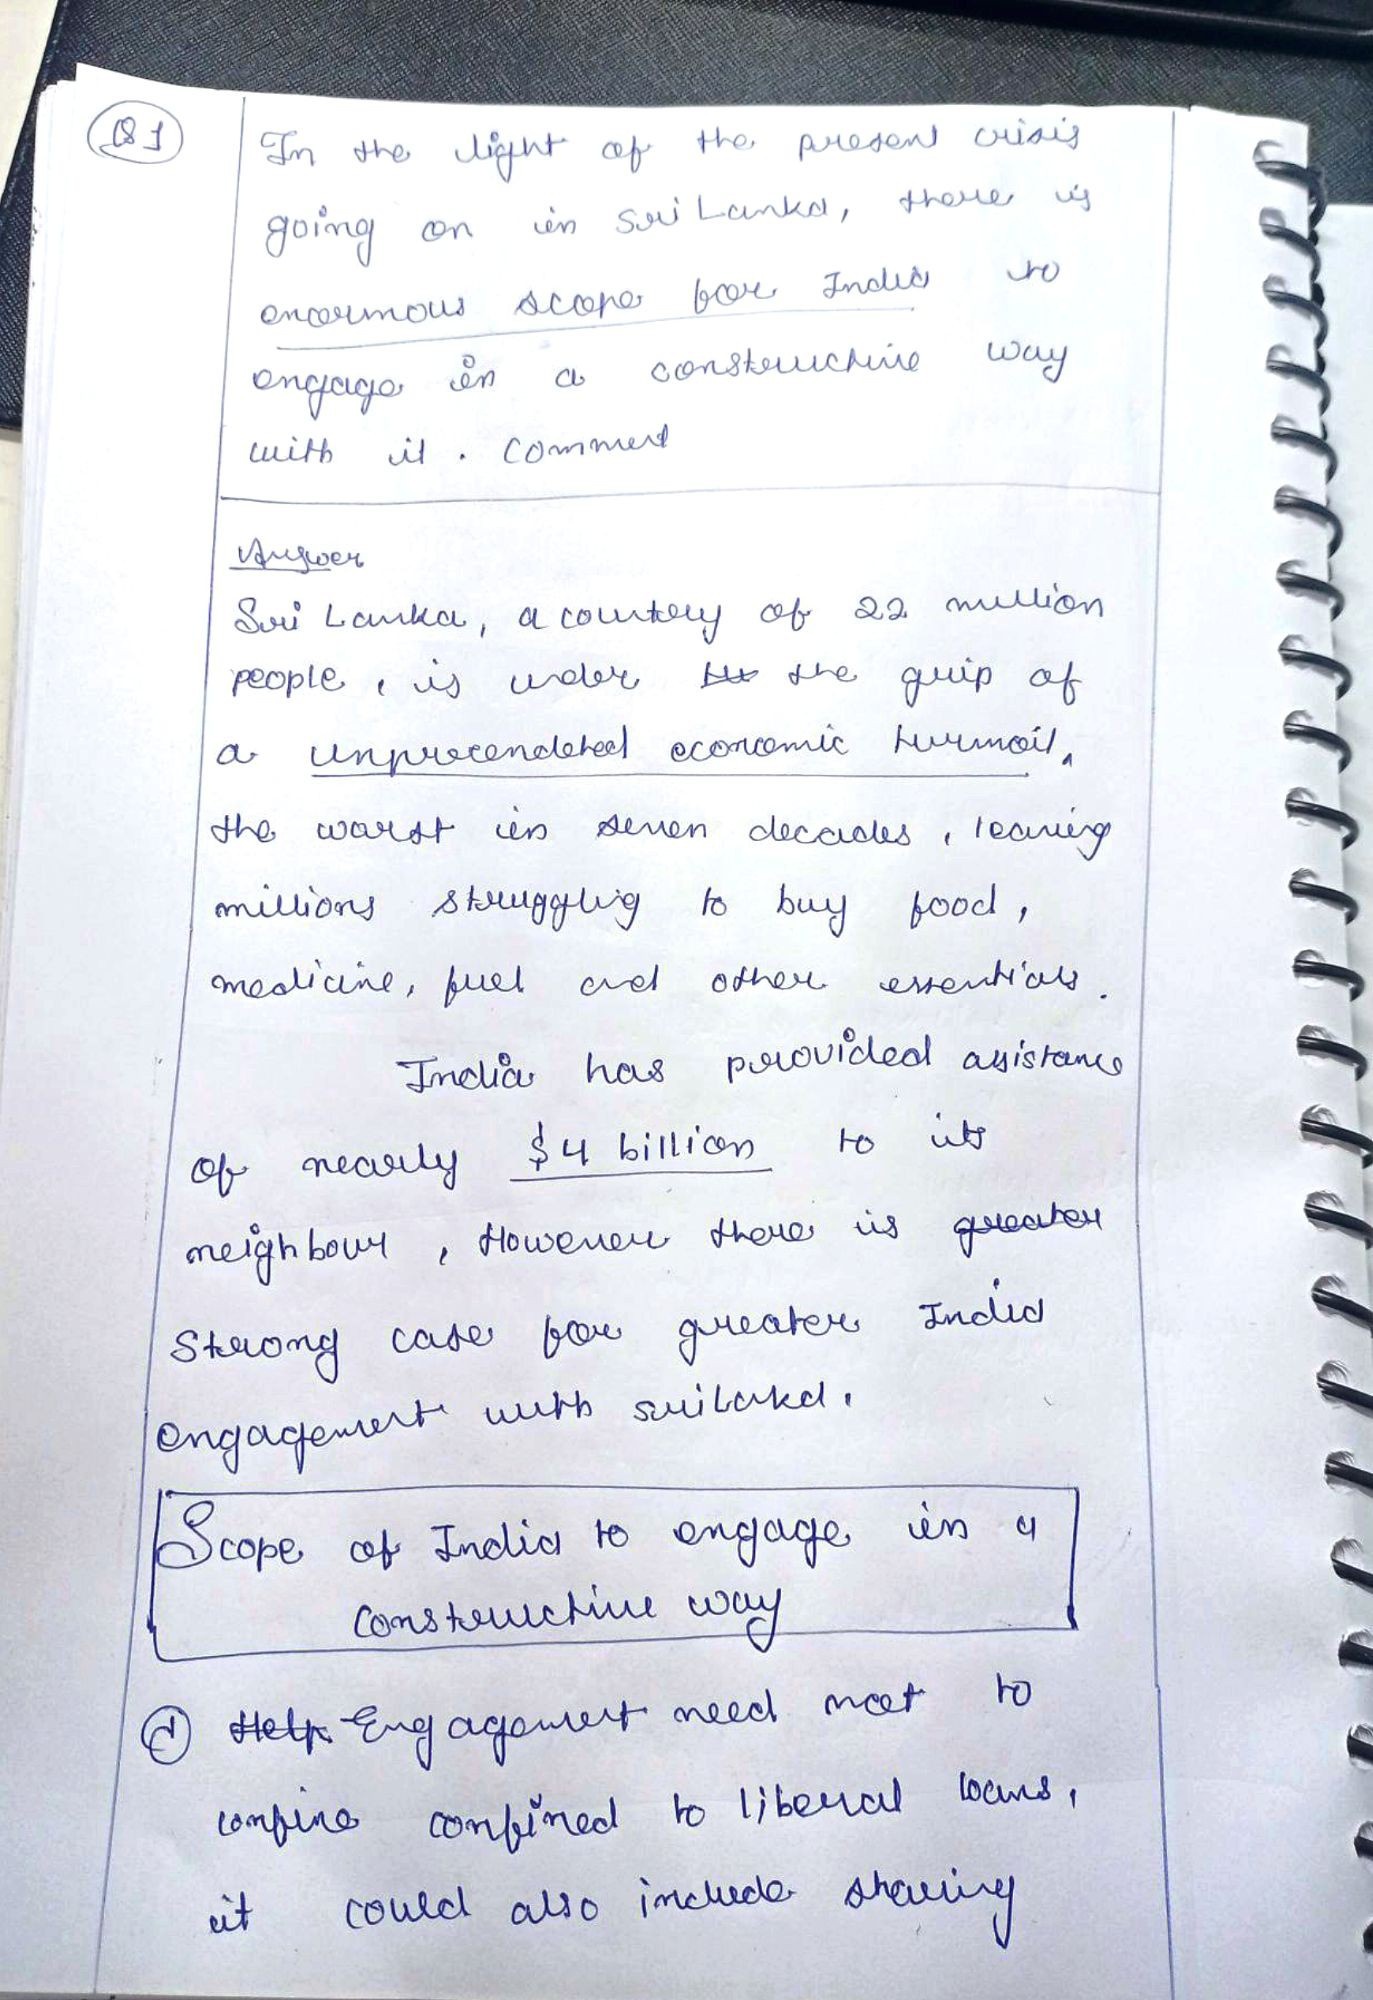 Q1
In the light of the present crisis
going on in Sri Lanka, there is
enormous scope for India to
engage in a constructive way
with it. Comment
Answer
Sri Lanka, a country of 22 million
people, is under the grip of
a unprecendeted economic turmoil,
the worst in seven decades, leaving
millions struggling to buy food,
medicine, fuel and other essentials.
India has provided assistance
of nearly $4 billion to its
neighbour, However there is greater
strong case for greater India
engagement with srilanka.
Scope of India to engage in a
constructive way
Help Engagement need not to
confine confined to liberal loans,
it could also include sharing